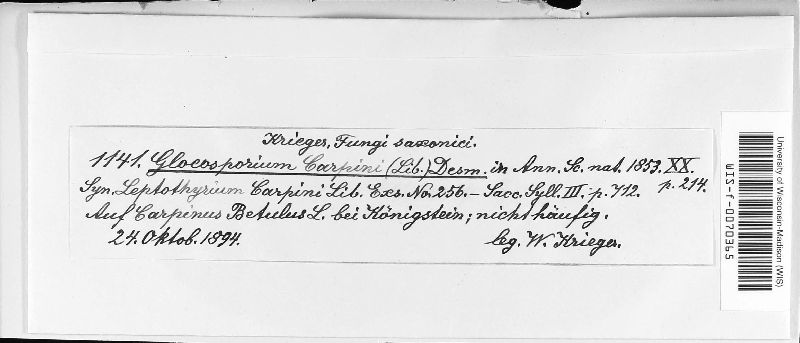 Krieger, Fungi saxonici.
1141. Gloeosporium Carpini (Lib.) Desm. in Ann. Sc. nat. 1853. XX. p. 214.
Syn. Leptothyrium Carpini Lib. Exs. No. 256. – Sacc. Syll. III. p. 712.
Auf Carpinus Betulus L. bei Königstein; nicht häufig.
24. Oktob. 1894. leg. W. Krieger.
University of Wisconsin-Madison (WIS)
WIS-f-0070365